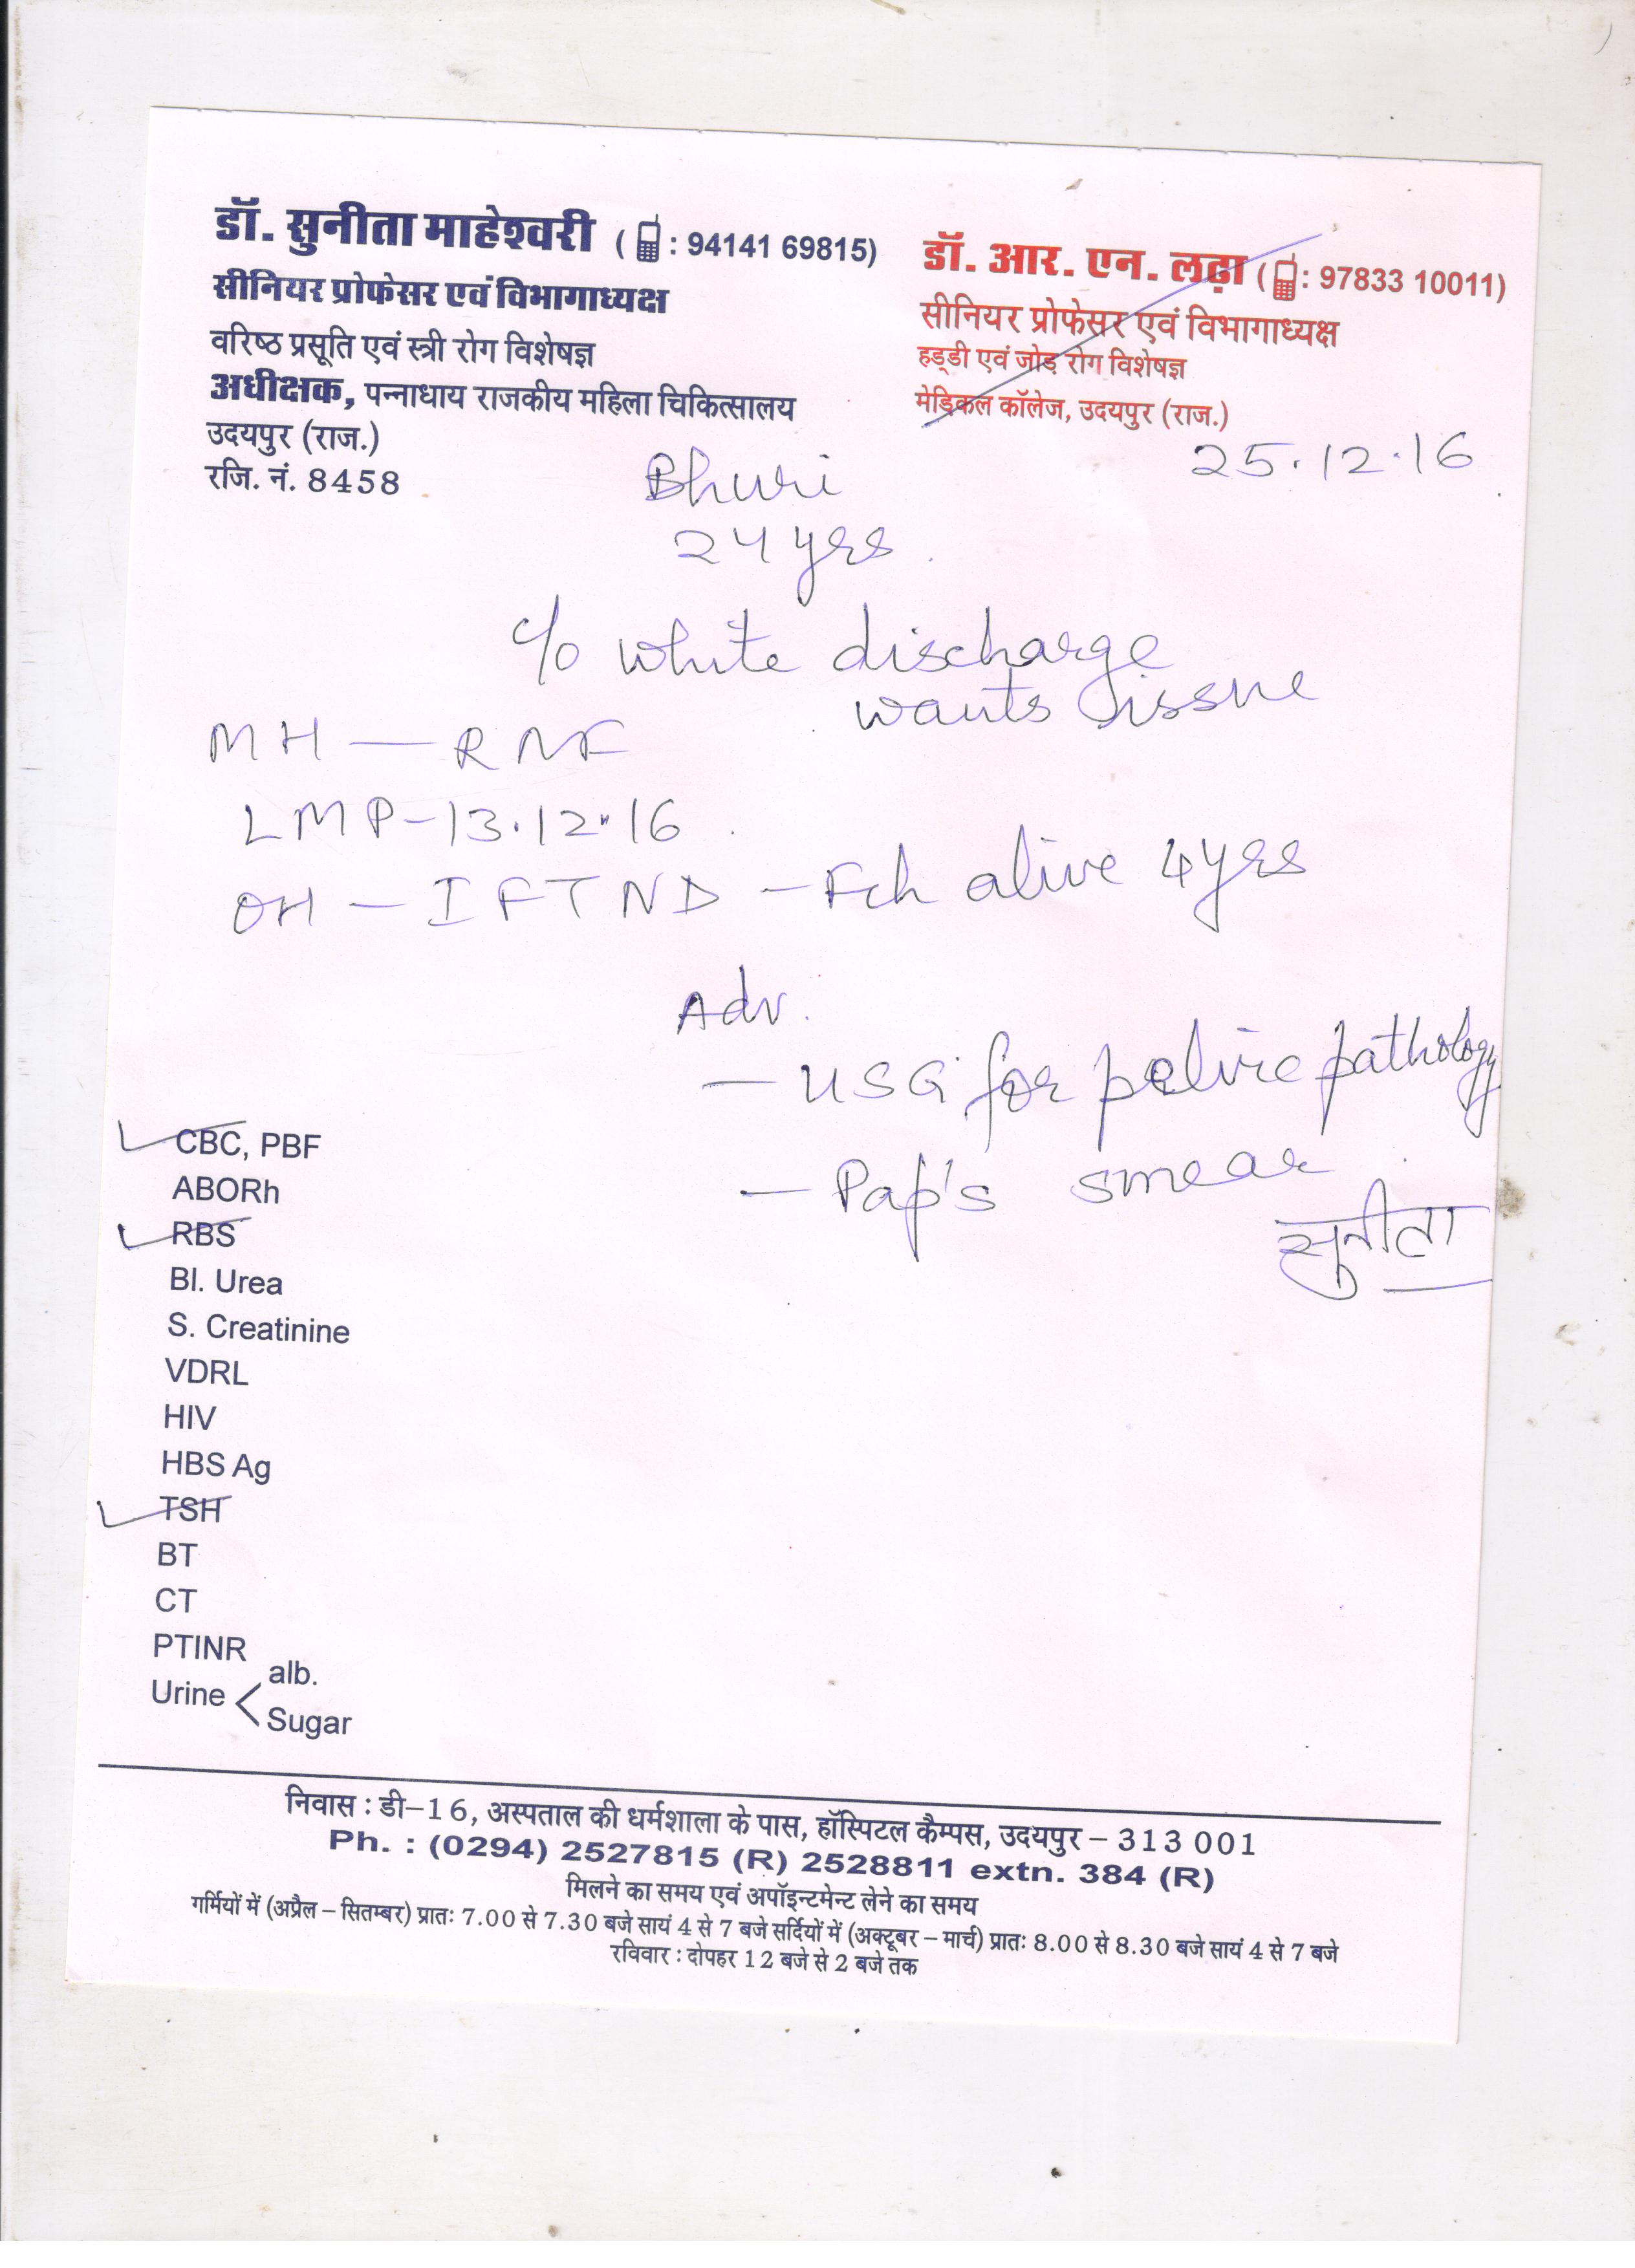 डॉ. सुनीता माहेश्वरी ( : 94141 69815)
सीनियर प्रोफेसर एवं विभागाध्यक्ष
वरिष्ठ प्रसूति एवं स्त्री रोग विशेषज्ञ
अधीक्षक, पन्नाधाय राजकीय महिला चिकित्सालय
उदयपुर (राज.)
रजि. नं. 8458
डॉ. आर. एन. लढ़ा ( : 97833 10011)
सीनियर प्रोफेसर एवं विभागाध्यक्ष
हड्डी एवं जोड़ रोग विशेषज्ञ
मेडिकल कॉलेज, उदयपुर (राज.)
25.12.16
Bhuri
24 yrs
c/o white discharge
wants issue
MH — RNF
LMP - 13.12.16
OH — I FTND - Fch alive 4 yrs
Adv.
— USG for pelvic pathology
— Pap's smear
सुनीता
CBC, PBF
ABORh
RBS
Bl. Urea
S. Creatinine
VDRL
HIV
HBS Ag
TSH
BT
CT
PTINR
Urine < alb.
Sugar
निवास : डी-16, अस्पताल की धर्मशाला के पास, हॉस्पिटल कैम्पस, उदयपुर – 313 001
Ph. : (0294) 2527815 (R) 2528811 extn. 384 (R)
मिलने का समय एवं अपॉइन्टमेन्ट लेने का समय
गर्मियों में (अप्रैल – सितम्बर) प्रातः 7.00 से 7.30 बजे सायं 4 से 7 बजे सर्दियों में (अक्टूबर – मार्च) प्रातः 8.00 से 8.30 बजे सायं 4 से 7 बजे
रविवार : दोपहर 12 बजे से 2 बजे तक